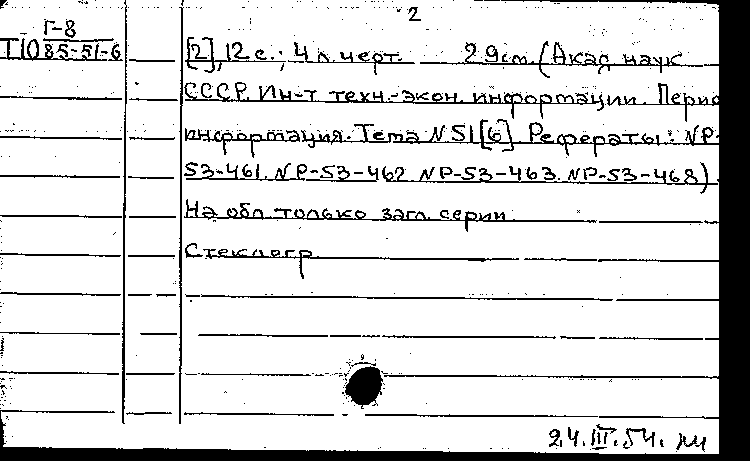 2
Г-8
Т10 85-51-6
[2], 12 с.; 4 л. черт. 29см. (Акад. наук
СССР. Ин-т техн.-экон. информации. Перио
информация. Тема N 51[6]. Рефераты: NР-
53-461. NР-53-462 NР-53-463. NР-53-468).
На обл. только загл. серии.
Стеклогр.
24.III.54.